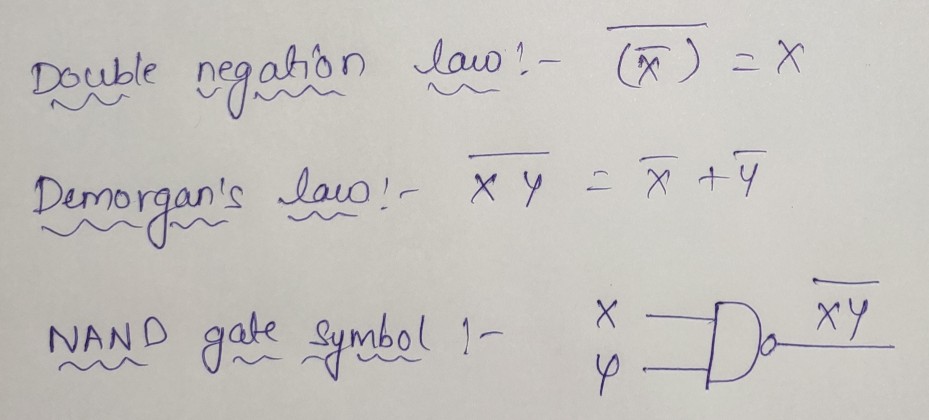 Double negation law:- $\overline{(\overline{x})} = x$
Demorgan's law:- $\overline{xy} = \overline{x} + \overline{y}$
NAND gate symbol :- x y $\overline{xy}$